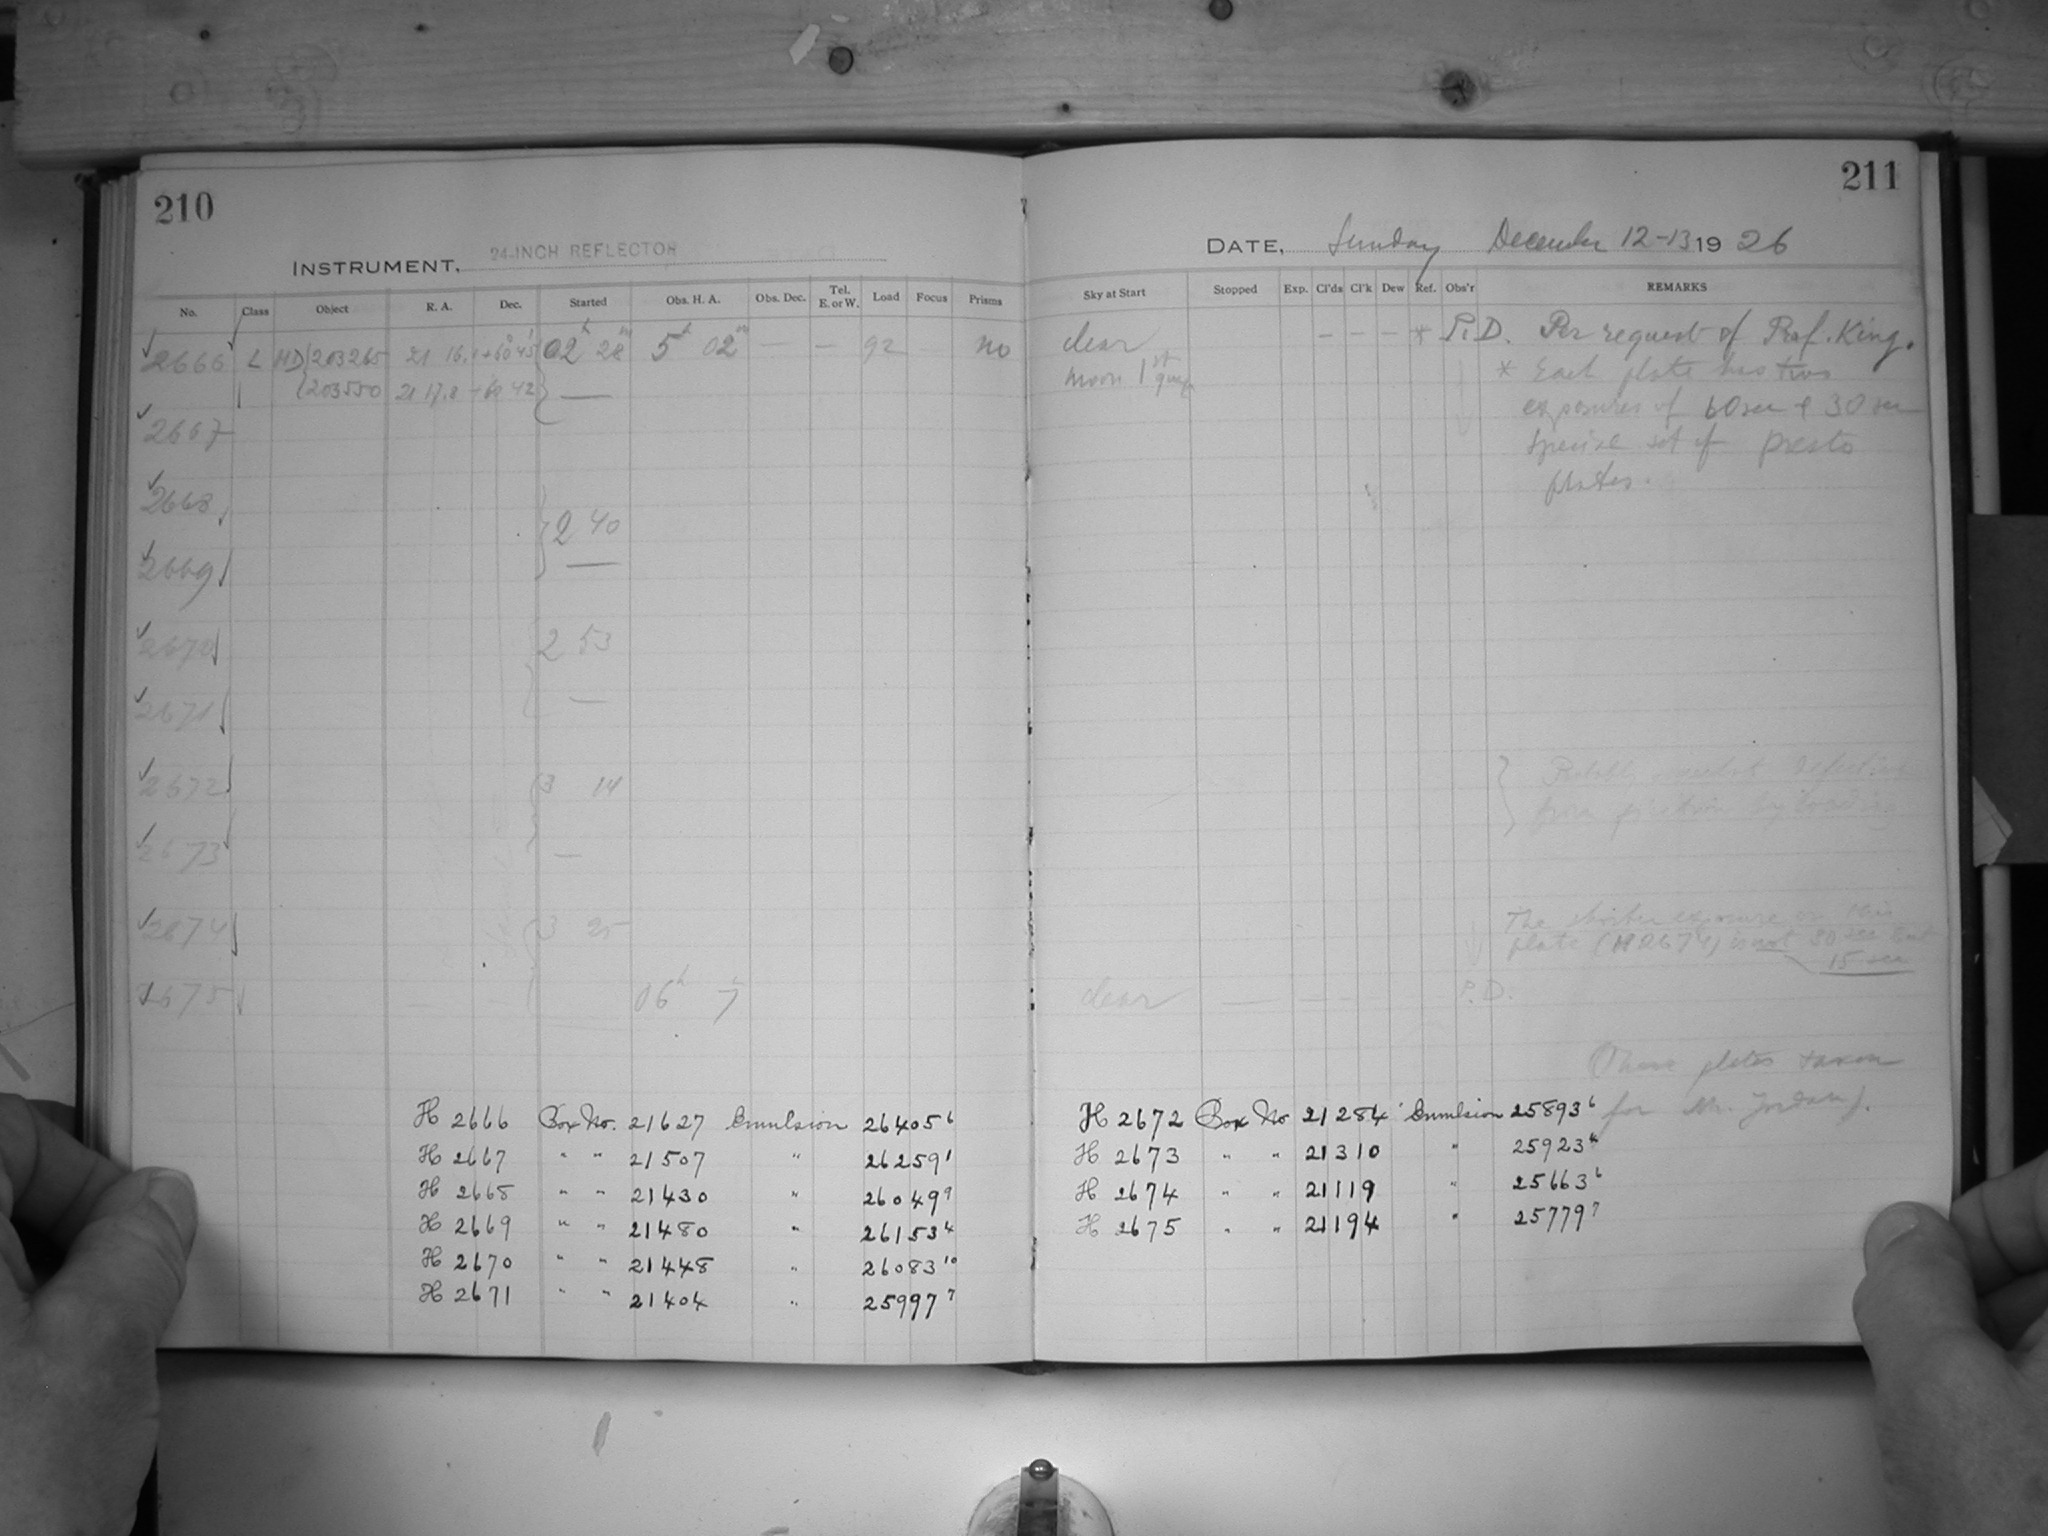 210
INSTRUMENT, 24-INCH REFLECTOR
No. Class Object R. A. Dec. Started Obs. H. A. Obs. Dec. Tel. E. or W. Load Focus Prisms
2666 L HD 203265 21 16.1 +60 45 02h 28m 5h 02m — — 92 no
203550 21 17.8 +60 42 —
2667
2668
2 40
2669 —
2670 2 53
2671 —
2672 3 14
2673 —
2674 3 25
2675 06h 7
H 2666 Box No. 21627 Emulsion 26405 6
H 2667 " " 21507 " 26259 1
H 2668 " " 21430 " 26049 9
H 2669 " " 21480 " 26153 4
H 2670 " " 21448 " 26083 10
H 2671 " " 21404 " 25997 7
211
DATE, Sunday December 12-13 1926
Sky at Start Stopped Exp. Cl'ds Cl'k Dew Ref. Obs'r REMARKS
clear — — — * P.D. Per request of Prof. King.
Moon 1st quar * Each plate has two
exposures of 60 sec & 30 sec
special set of presto
plates.
from friction by loading
The shorter exposure on this
plate (H 2674) is not 30 sec but
15 sec
clear — — — P.D.
These plates taken
for Mr. Jordan).
H 2672 Box No 21284 Emulsion 25893 6
H 2673 " " 21310 " 25923 4
H 2674 " " 21119 " 25663 6
H 2675 " " 21194 " 25779 7